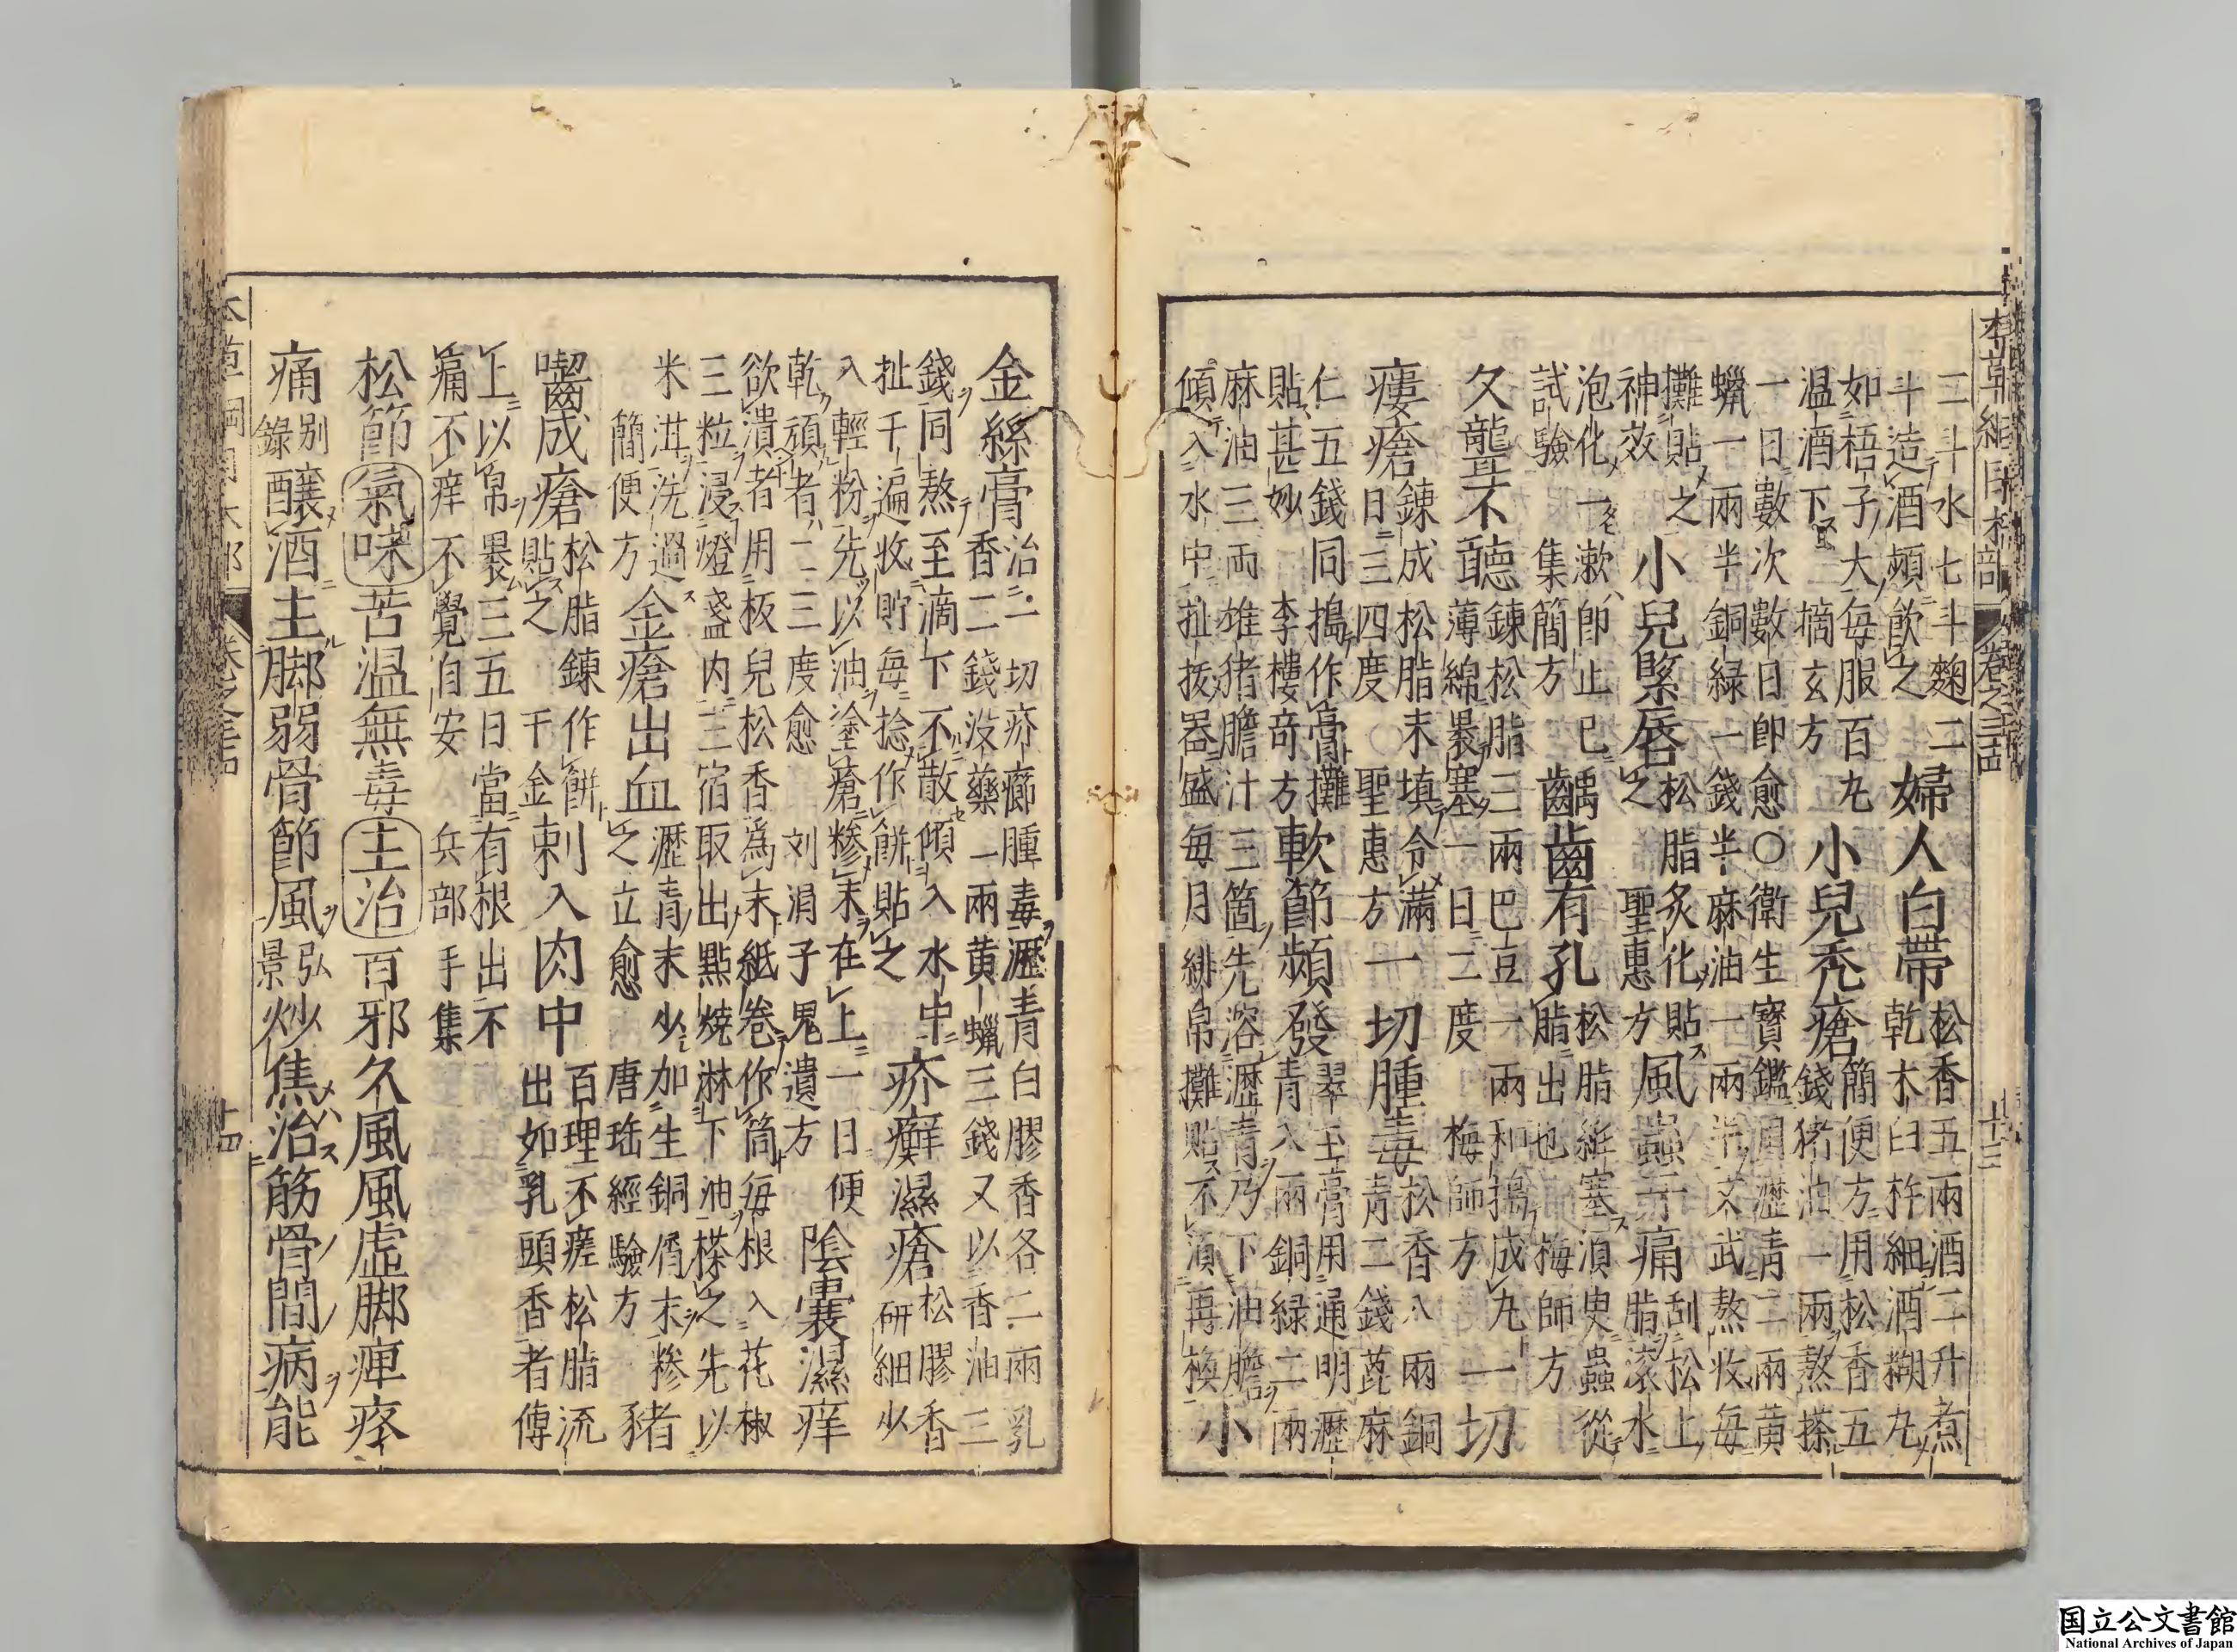 本草綱目木部 卷之三十四 十三
二斗水七斗麹二斗造酒頻飲之 婦人白帶 松香五兩酒二升煮乾木臼杵細酒糊丸
如梧子大每服百丸温酒下 摘玄方 小兒禿瘡 簡便方用松香五錢猪油一兩熬搽
一日數次數日即愈○衛生寳鑑用瀝青二兩黄蠟一兩半銅緑一錢半麻油一兩半文武熬收每
攤貼之神效 小兒緊唇 松脂炙化貼之 聖惠方 風蟲牙痛 刮松上脂滾水
泡化一漱即止已試驗 集簡方 齲齒有孔 松脂紝塞湏臾蟲從脂出也 梅師方
久聾不聽 錬松脂三兩巴豆一兩和搗成丸薄綿褁塞一日二度 梅師方 一切
瘻瘡 錬成松脂末填令滿日三四度○聖惠方 一切腫毒 松香八兩銅青二錢蓖麻
仁五錢同搗作膏攤貼甚妙 李樓竒方 軟節頻發 翠玉膏用通明瀝青八兩銅緑二兩
麻油三両雄猪膽汁三箇先溶瀝青乃下油膽傾入水中扯抜器盛每月緋帛攤貼不湏再換 小
金絲膏 治一切疥癤腫毒瀝青白膠香各二兩乳香二錢没藥一兩黄蠟三錢又以香油三
錢同熬至滴下不散傾入水中扯千遍收貯每捻作餅貼之 疥癬濕瘡 松膠香研細少
入輕粉先以油塗瘡糝末在上一日便乾頑者二三度愈 刘涓子鬼遺方 陰囊濕痒
欲潰者用板兒松香爲末紙卷作筒每根入花椒三粒浸燈盞内三宿取出點燒淋下油搽之先以
米泔洗過 簡便方 金瘡出血 瀝青末少加生銅屑末糝之立愈 唐瑶經驗方 豬
嚙成瘡 松脂錬作餅貼之 千金 刺入肉中 百理不瘥松脂流出如乳頭香者傅
上以帛褁三五日當有根出不痛不痒不覺自安 兵部手集
松節 氣味 苦温無毒 主治 百邪久風風虚脚痺疼
痛 别錄 醸酒主脚弱骨節風 弘景 炒焦治筋骨間病能
本草綱目木部 卷之三十四 十四
国立公文書館
National Archives of Japan